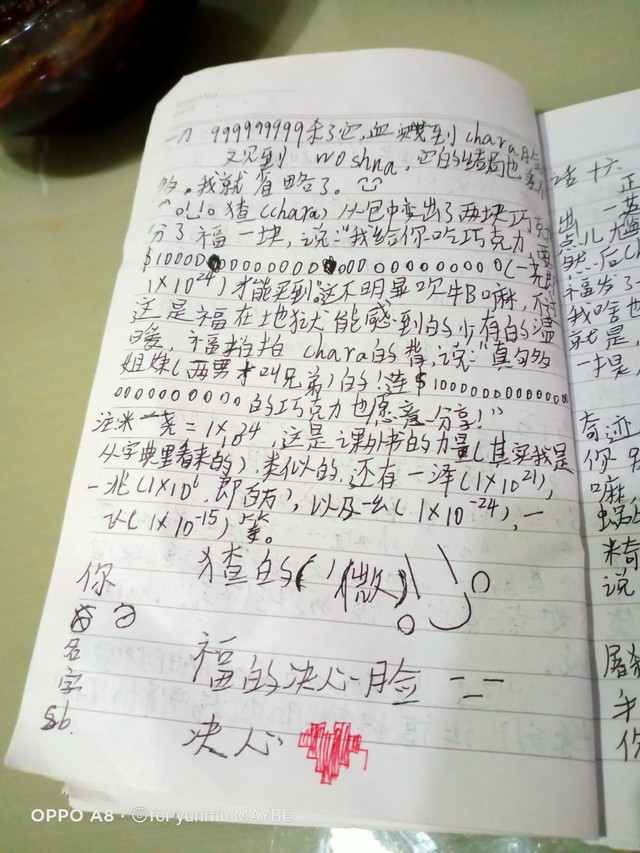 一刀 999999999杀了它,血溅到chara脸
又见到 woshna, 它的结局也差不
多。我就省略了。
^o!,!o 猹(chara)从包中变出了两块巧克力
分了福一块,说:"我给你吃巧克力,要
$10000●00000000●000000000000(一尧
1×10^24)才能买到。"这不明显吹牛B嘛,不过
这是福在地狱能感到的少有的温
暖,福拍拍 chara的背,说:"真勾多
姐妹(两男才叫兄弟)的!连$10000000000000
0000000000的巧克力也愿意分享!"
注※一尧=1×10^24,这是课外书的力量(其实我是
从字典里看来的),类似的,还有一泽(1×10^21),
一兆(1×10^6,即百万),以及一幺(1×10^-24),一
飞(1×10^-15)等。
猹的(微)
你
的
名
字
sb.
福的决心脸 二二
决心
话十六
正
出 一
点儿
然后
福发了
我啥也
就是,
一扫是
奇迹
你
嘛
蜗
米奇
说
屠杀
手
你
OPPO A8 · ©foryunmu MAYBE